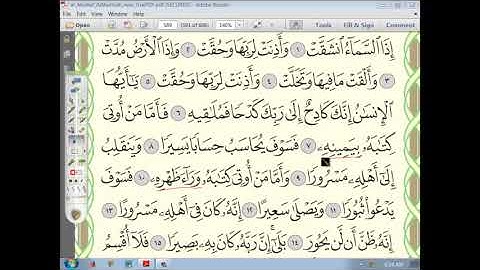 Adobe Reader
589 140% Tools Fill & Sign Comment
إِذَا ٱلسَّمَآءُ ٱنشَقَّتْ ١ وَأَذِنَتْ لِرَبِّهَا وَحُقَّتْ ٢ وَإِذَا ٱلْأَرْضُ مُدَّتْ
٣ وَأَلْقَتْ مَا فِيهَا وَتَخَلَّتْ ٤ وَأَذِنَتْ لِرَبِّهَا وَحُقَّتْ ٥ يَٰٓأَيُّهَا
ٱلْإِنسَٰنُ إِنَّكَ كَادِحٌ إِلَىٰ رَبِّكَ كَدْحًا فَمُلَٰقِيهِ ٦ فَأَمَّا مَنْ أُوتِىَ
كِتَٰبَهُۥ بِيَمِينِهِۦ ٧ فَسَوْفَ يُحَاسَبُ حِسَابًا يَسِيرًا ٨ وَيَنقَلِبُ
إِلَىٰٓ أَهْلِهِۦ مَسْرُورًا ٩ وَأَمَّا مَنْ أُوتِىَ كِتَٰبَهُۥ وَرَآءَ ظَهْرِهِۦ ١٠ فَسَوْفَ
يَدْعُوا۟ ثُبُورًا ١١ وَيَصْلَىٰ سَعِيرًا ١٢ إِنَّهُۥ كَانَ فِىٓ أَهْلِهِۦ مَسْرُورًا ١٣
إِنَّهُۥ ظَنَّ أَن لَّن يَحُورَ ١٤ بَلَىٰٓ إِنَّ رَبَّهُۥ كَانَ بِهِۦ بَصِيرًا ١٥ فَلَآ أُقْسِمُ